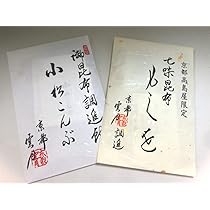 御昆布調進所
小松こんぶ
京都
雲月
京都高島屋限定
七味昆布
めしを
京都
雲月調進